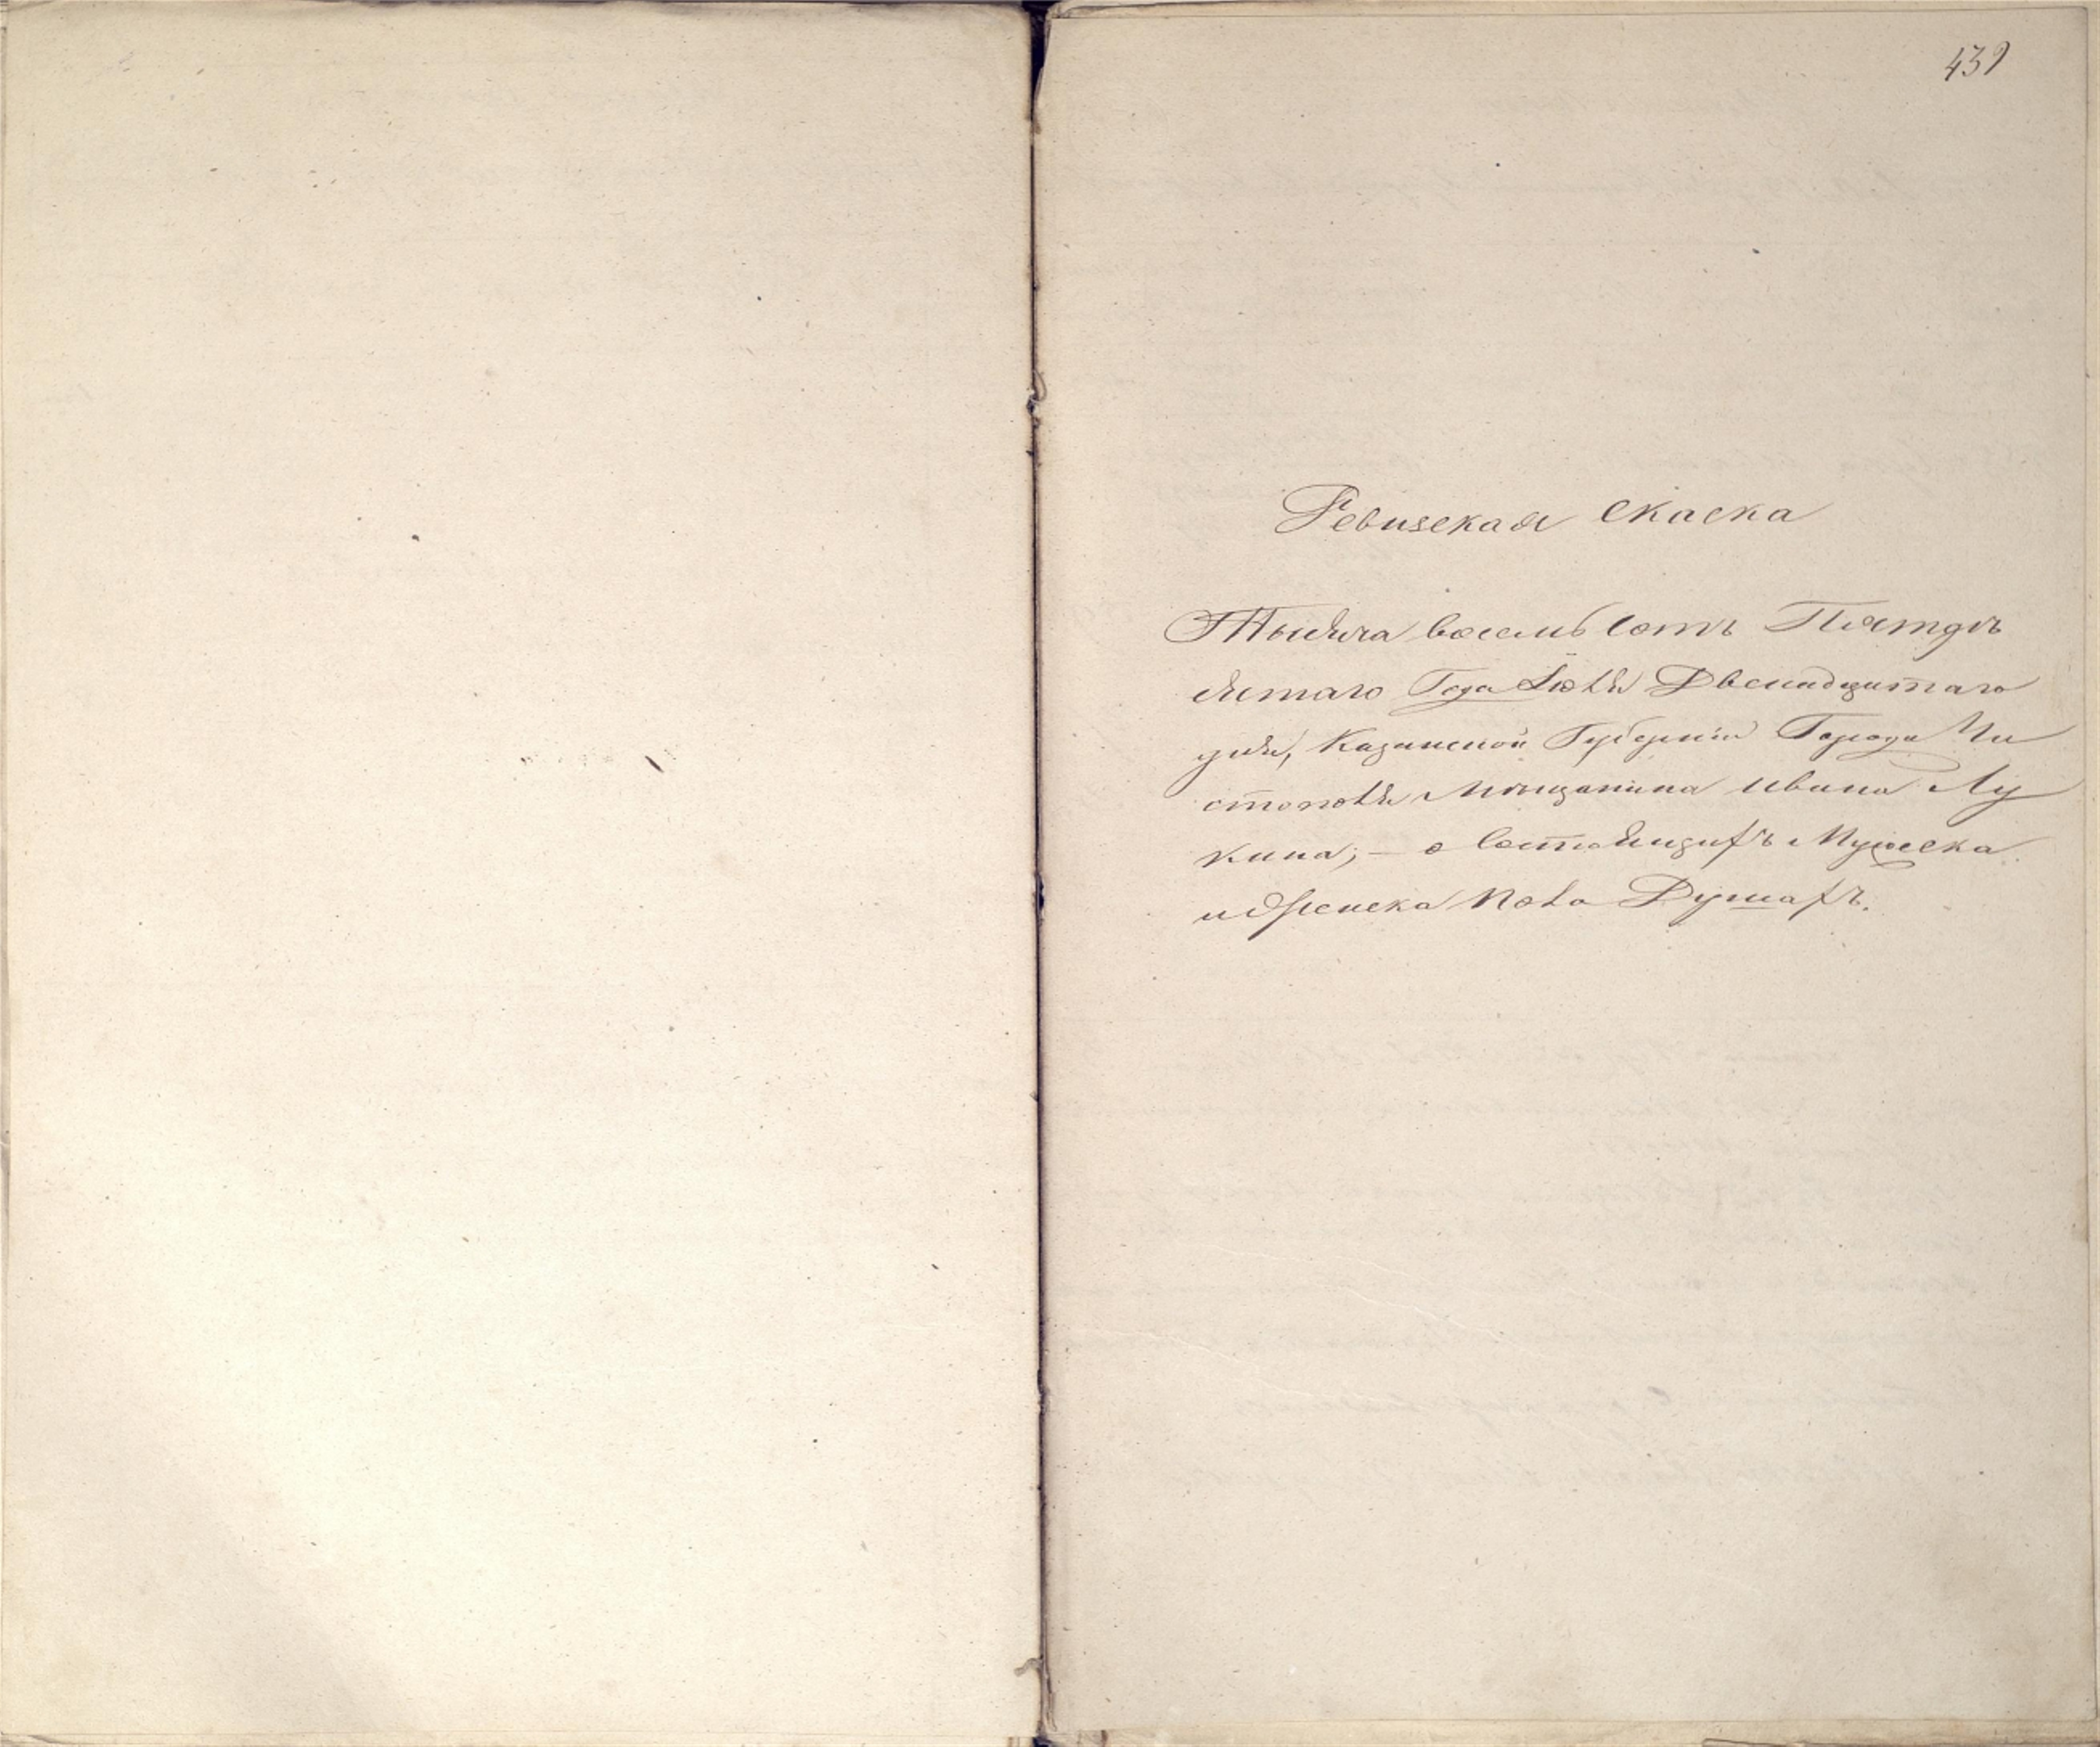 439
Ревизская скаска
Тысяча восемь сотъ Пятдѣ
сятаго Года Іюля Двенадцатаго
дня, Казанской Губерніи Города Чи
стополя Мѣщанина Ивана Лу
кина; — о состоящихъ Мужеска
и Женска пола Душахъ.